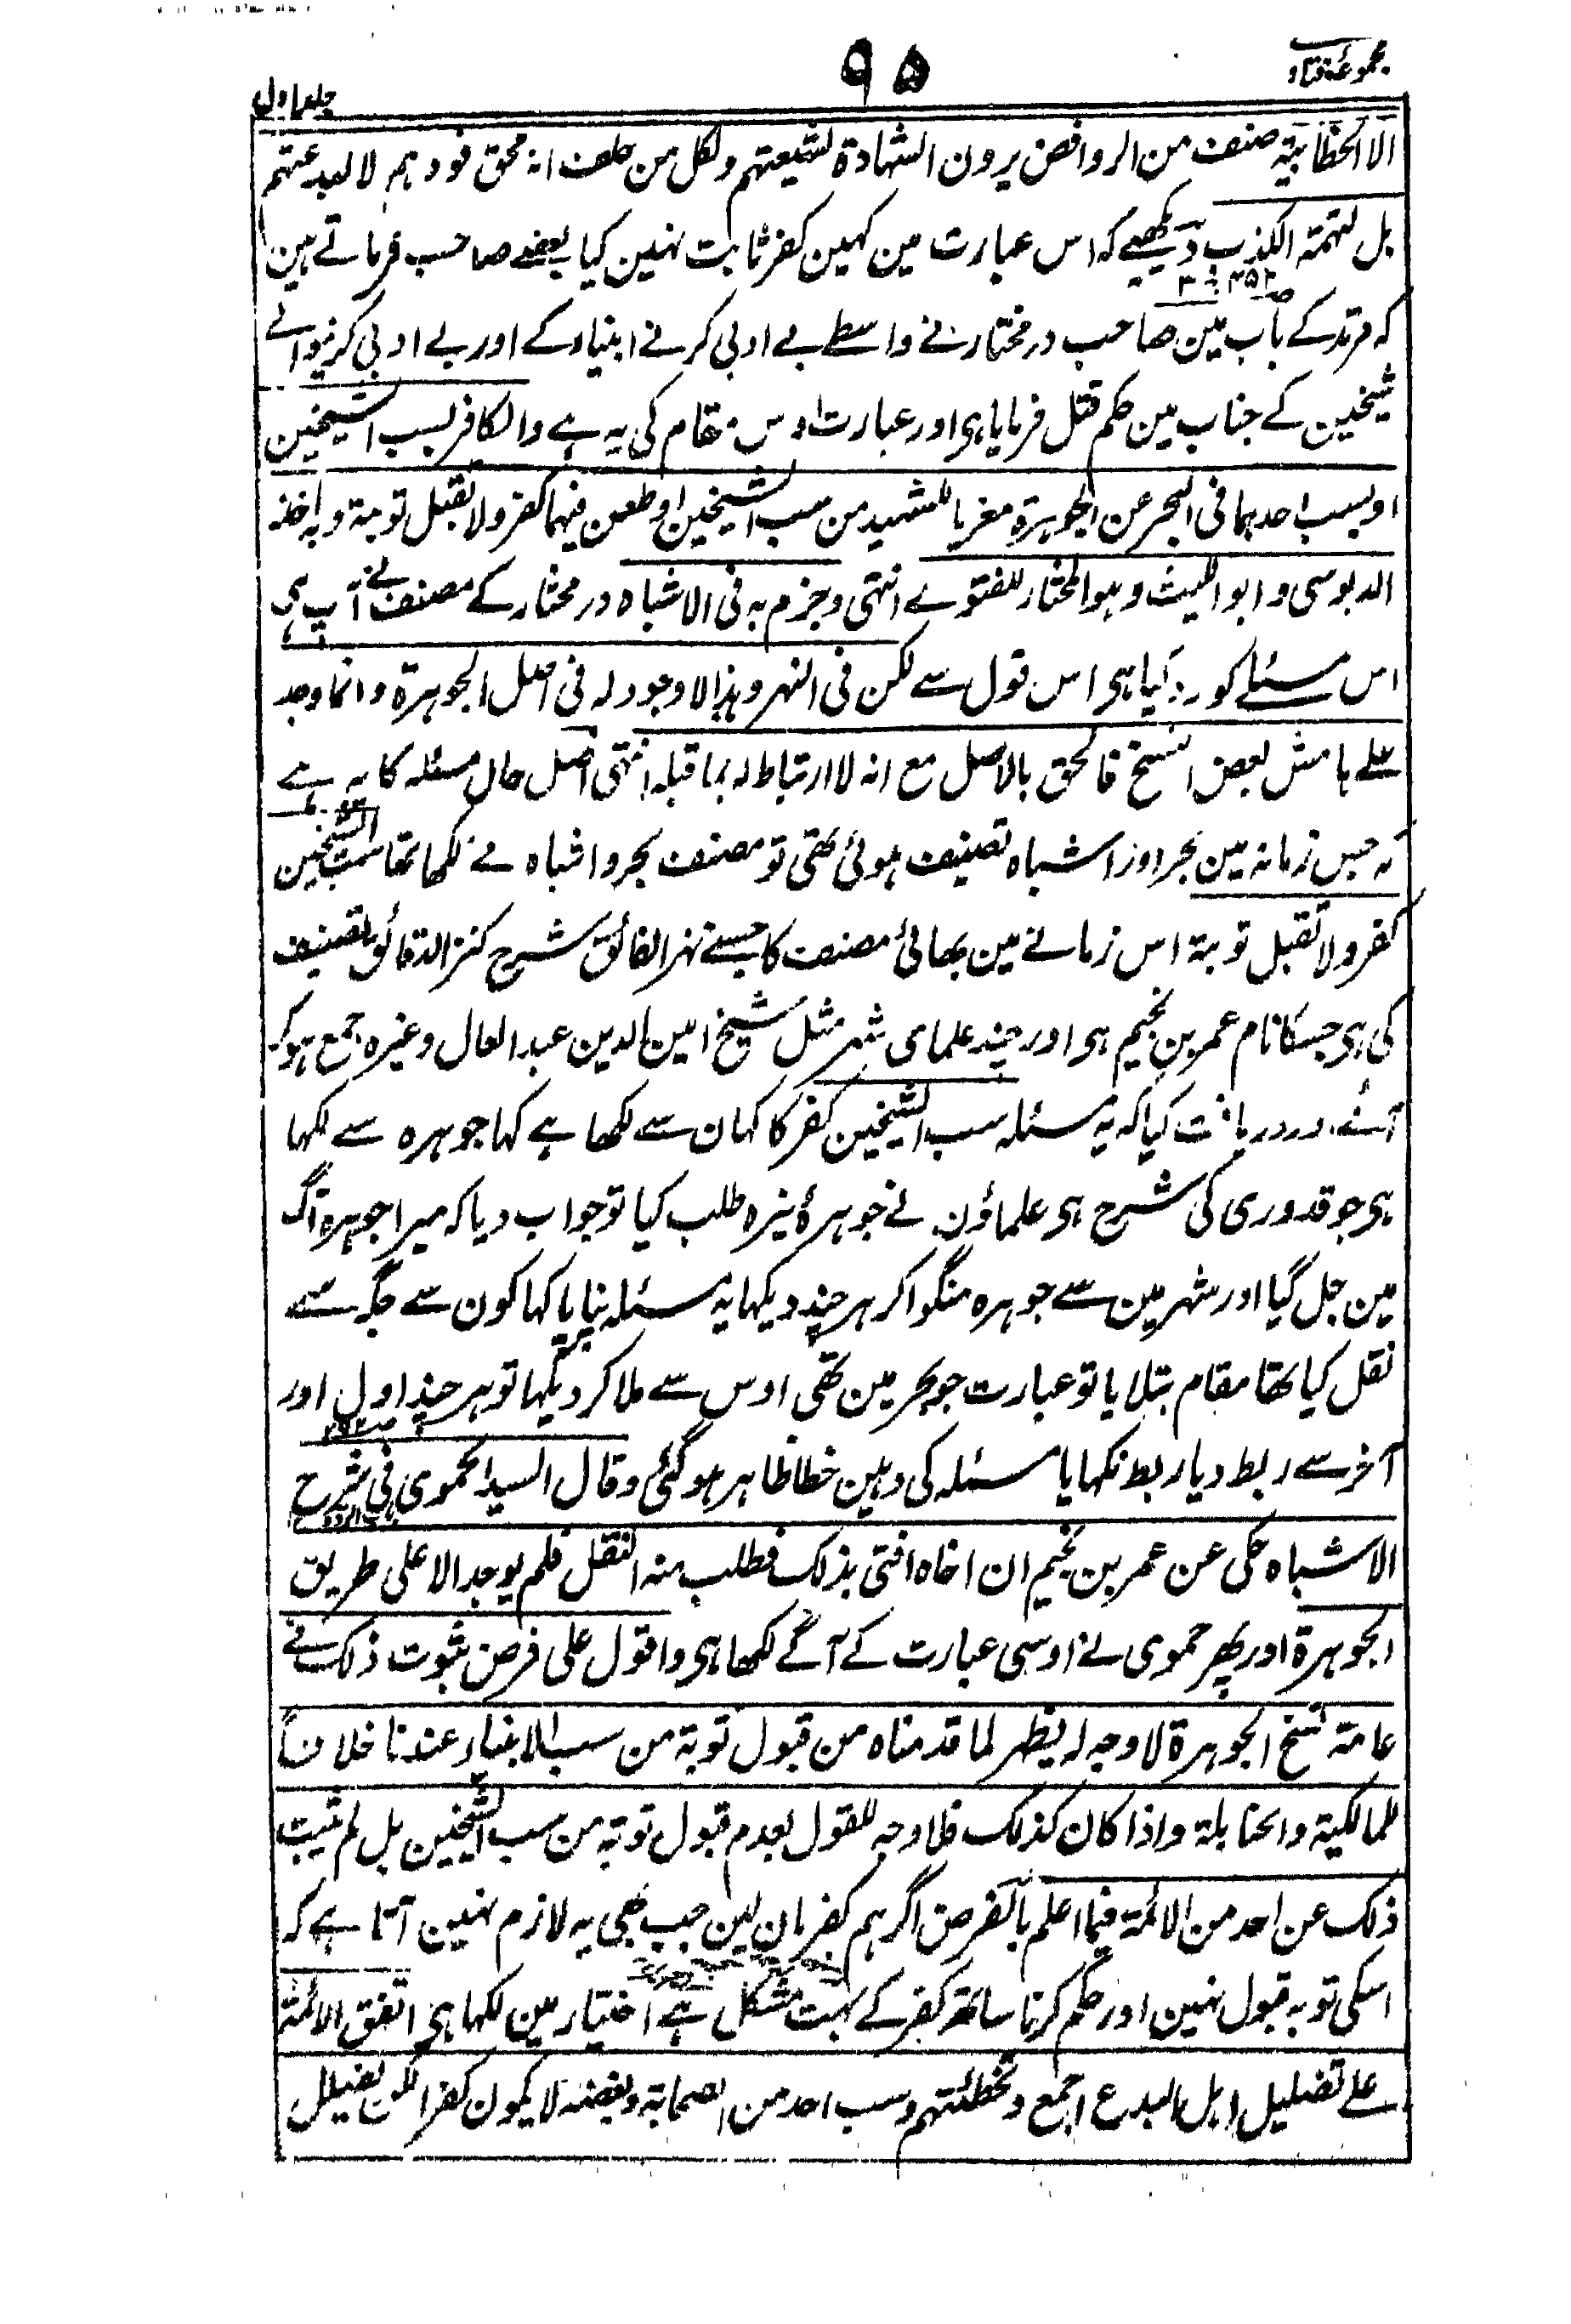 مجموعۂ فتاو
۹۵
جلد اول
الا الخطابیۃ صنف من الروافض یرون الشہادۃ لشیعتہم ولکل من حلف انہ محق فردہم لا لبدعتہم
بل لتہمۃ الکذب دیکھیے کہ اس عبارت مین کہین کفر ثابت نہین کیا بعضے صاحب فرماتے ہین
کہ مرتد کے باب مین صاحب درمختار نے واسطے بے ادبی کرنے انبیاء کے اور بے ادبی کرنیوالے
شیخین کے جناب مین حکم قتل فرمایا ہی اور عبارت اوس مقام کی یہ ہے والکافر بسب الشیخین
او بسب احدہما فی البحر عن الجوہرۃ معزیا للشہید من سب الشیخین او طعن فیہما کفر ولا تقبل توبتہ وبہ اخذ
الدبوسی و ابو اللیث وہو المختار للفتوے انتہی وجزم بہ فی الاشباہ درمختار کے مصنف نے آپ ہی
اس مسئلے کو رد کیا ہی اس قول سے لکن فی النہر وہذا لا وجود لہ فی اصل الجوہرۃ وانما وجد
علے ہامش بعض النسخ فالحق بالاصل مع انہ لا ارتباط لہ بما قبلہ انتہی اصل حال مسئلہ کا یہ ہے
کہ جس زمانہ مین بحر اور اشباہ تصنیف ہوئی تھی تو مصنف بحر و اشباہ نے لکھا تھا سب الشیخین
کفر ولا تقبل توبتہ اس زمانے مین بھائی مصنف کا جسنے نہر الفائق شرح کنز الدقائق تصنیف
کی ہی جسکا نام عمر بن نجیم ہی اور چند علمای شہر مثل شیخ امین الدین عبد العال وغیرہ جمع ہوکر
آئے اور دریافت کیا کہ یہ مسئلہ سب الشیخین کفر کا کہان سے لکھا ہے کہا جوہرہ سے لکہا
ہی جو قدوری کی شرح ہی علماؤن نے جوہرۂ نیرہ طلب کیا تو جواب دیا کہ میرا جوہرہ آگ
مین جل گیا اور شہر مین سے جوہرہ منگوا کر ہر چند دیکہا یہ مسئلہ نپایا کہا کون سے جگہ سے
نقل کیا تھا مقام بتلایا تو عبارت جو بحر مین تھی اوس سے ملا کر دیکہا تو ہر چند اول اور
آخر سے ربط دیا ربط نکہایا مسئلہ کی وہین خطا ظاہر ہوگئی وقال السید الحموی فی شرح
الاشباہ حکی عن عمر بن نجیم ان اخاہ افتی بذلک فطلب منہ النقل فلم یوجد الا علی طریق
الجوہرۃ اور پھر حموی نے اوسی عبارت کے آگے لکھا ہی واقول علی فرض ثبوت ذلک فے
عامۃ نسخ الجوہرۃ لا وجہ لہ یظہر لما قدمناہ من قبول توبۃ من سب الانبیاء عندنا خلافاً
للمالکیۃ والحنابلۃ واذا کان کذلک فلا وجہ للقول بعدم قبول توبۃ من سب الشیخین بل لم یثبت
ذلک عن احد من الائمۃ فیما اعلم بالفرض اگر ہم کفر مان لین جب بھی یہ لازم نہین آتا ہے کہ
اسکی توبہ قبول نہین اور حکم کرنا ساتھ کفر کے بہت مشکل ہے اختیار مین لکہا ہی اتفق الائمۃ
علے تضلیل اہل البدع اجمع وتخطئتہم وسب احد من الصحابۃ وبغضہ لا یکون کفرا لکن یضلل